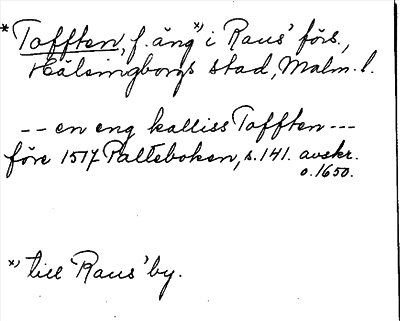 *Tofften, f. äng *) i Raus' förs.,
Hälsingborgs stad, Malm. l.
-- en eng kalliss Tofften ---
före 1517 Palteboken, s. 141. avskr.
o. 1650.
*) till Raus' by.